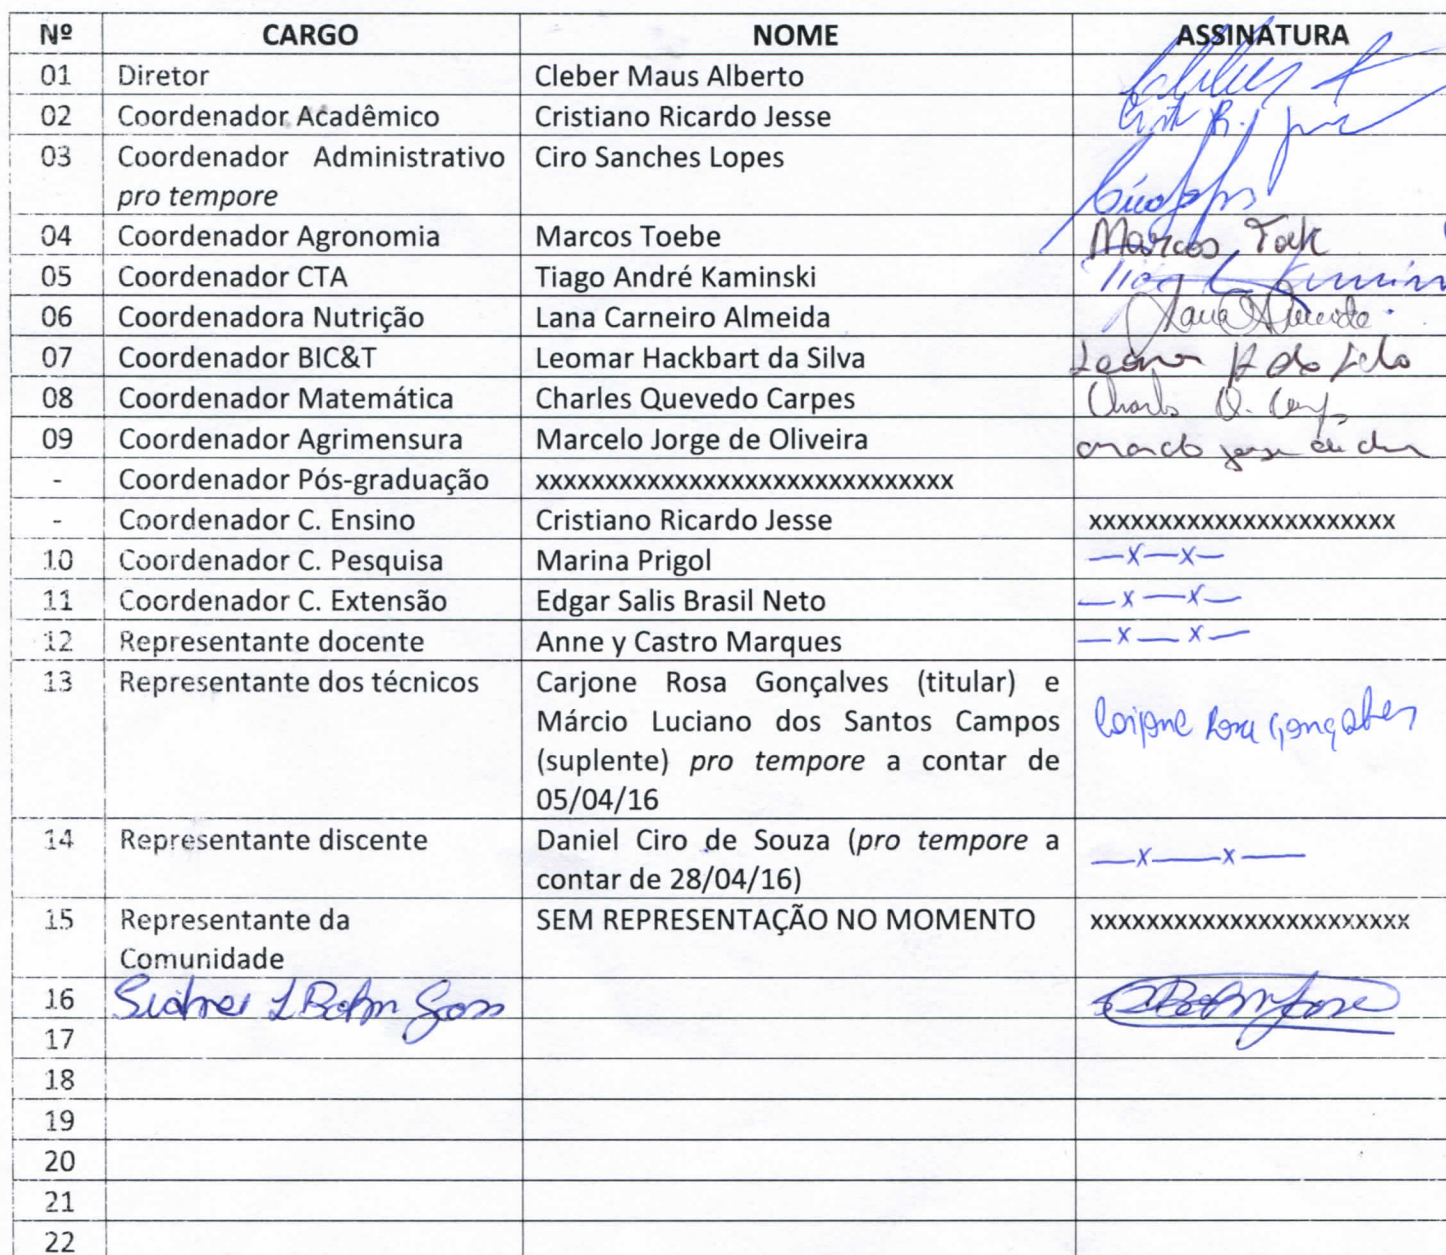 Nº CARGO NOME ASSINATURA
01 Diretor Cleber Maus Alberto
02 Coordenador Acadêmico Cristiano Ricardo Jesse
03 Coordenador Administrativo Ciro Sanches Lopes
pro tempore
04 Coordenador Agronomia Marcos Toebe Marcos
05 Coordenador CTA Tiago André Kaminski
06 Coordenadora Nutrição Lana Carneiro Almeida Lana Almeida
07 Coordenador BIC&T Leomar Hackbart da Silva
08 Coordenador Matemática Charles Quevedo Carpes Charles Q.
09 Coordenador Agrimensura Marcelo Jorge de Oliveira
- Coordenador Pós-graduação xxxxxxxxxxxxxxxxxxxxxxxxxxxxxx
- Coordenador C. Ensino Cristiano Ricardo Jesse xxxxxxxxxxxxxxxxxxxxxx
10 Coordenador C. Pesquisa Marina Prigol —x—x—
11 Coordenador C. Extensão Edgar Salis Brasil Neto —x—x—
12 Representante docente Anne y Castro Marques —x—x—
13 Representante dos técnicos Carjone Rosa Gonçalves (titular) e
Márcio Luciano dos Santos Campos Carjone Rosa Gonçalves
(suplente) pro tempore a contar de
05/04/16
14 Representante discente Daniel Ciro de Souza (pro tempore a —x—x—
contar de 28/04/16)
15 Representante da SEM REPRESENTAÇÃO NO MOMENTO xxxxxxxxxxxxxxxxxxxxxxx
Comunidade
16
17
18
19
20
21
22